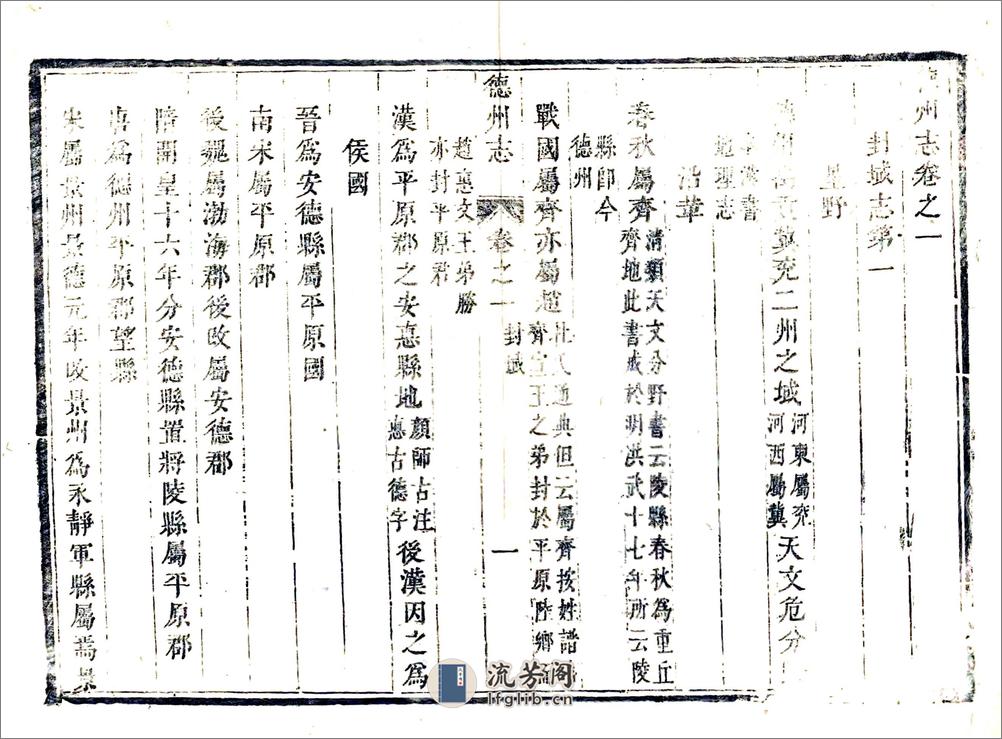 州志卷之一
封域志第一
星野
冀兖二州之域河東屬兖河西屬冀天文危分
地理志
沿革
春秋屬齊清類天文分野書云陵縣春秋為重丘齊地此書成於明洪武十七年所云陵
縣即今
德州
戰國屬齊亦屬趙杜氏通典但云屬齊按姓譜齊宣王之弟封於平原陸鄉
趙惠文王弟勝
亦封平原君
德州志 卷之一 封域 一
漢為平原郡之安悳縣地顏師古注悳古德字後漢因之為
侯國
晉為安德縣屬平原國
南宋屬平原郡
後魏屬渤海郡後改屬安德郡
隋開皇十六年分安德縣置將陵縣屬平原郡
唐為德州平原郡望縣
宋屬景州景德元年改景州為永靜軍縣屬焉景
流芳阁
lfglib.cn